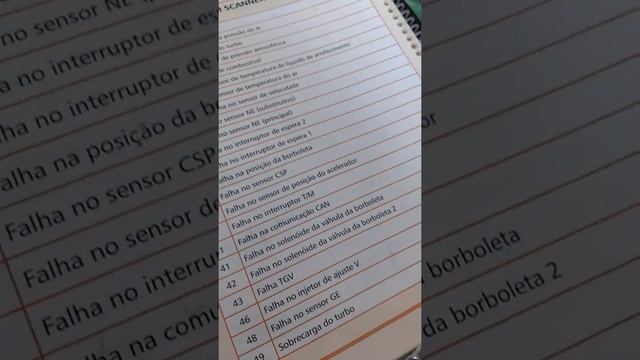 M SCANNER
de pressão do ar
do turbo
de pressão atmosférica
de combustível
sensor de temperatura do líquido de arrefecimento
sensor de temperatura do ar
ha no sensor de velocidade
no sensor NE (substitutivo)
no sensor NE (principal)
ha no interruptor de espera 2
ha no interruptor de espera 1
alha na posição da borboleta
Falha no sensor CSP
Falha no sensor de posição do acelerador
Falha no interruptor T/M
1 Falha na comunicação CAN
41 Falha no solenóide da válvula da borboleta
42 Falha no solenóide da válvula da borboleta 2
43 Falha TGV
46 Falha no injetor de ajuste V
48 Falha no sensor GE
49 Sobrecarga do turbo
no sensor NE (
ha no interruptor
ha no interruptor
alha na posição da b
Falha no sensor CSP
Falha no sensor de
Falha no interru
Falha na comu
borboleta
da borboleta 2